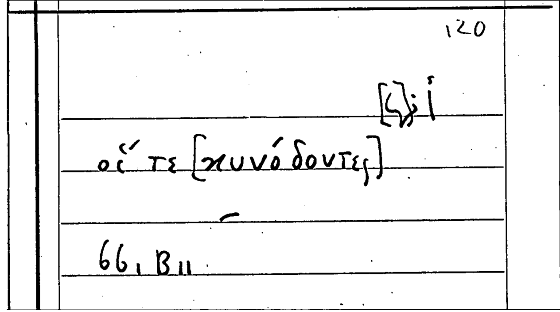 120
[ζ]; i
οἵ τε [κυνόδοντες]
66, B 11